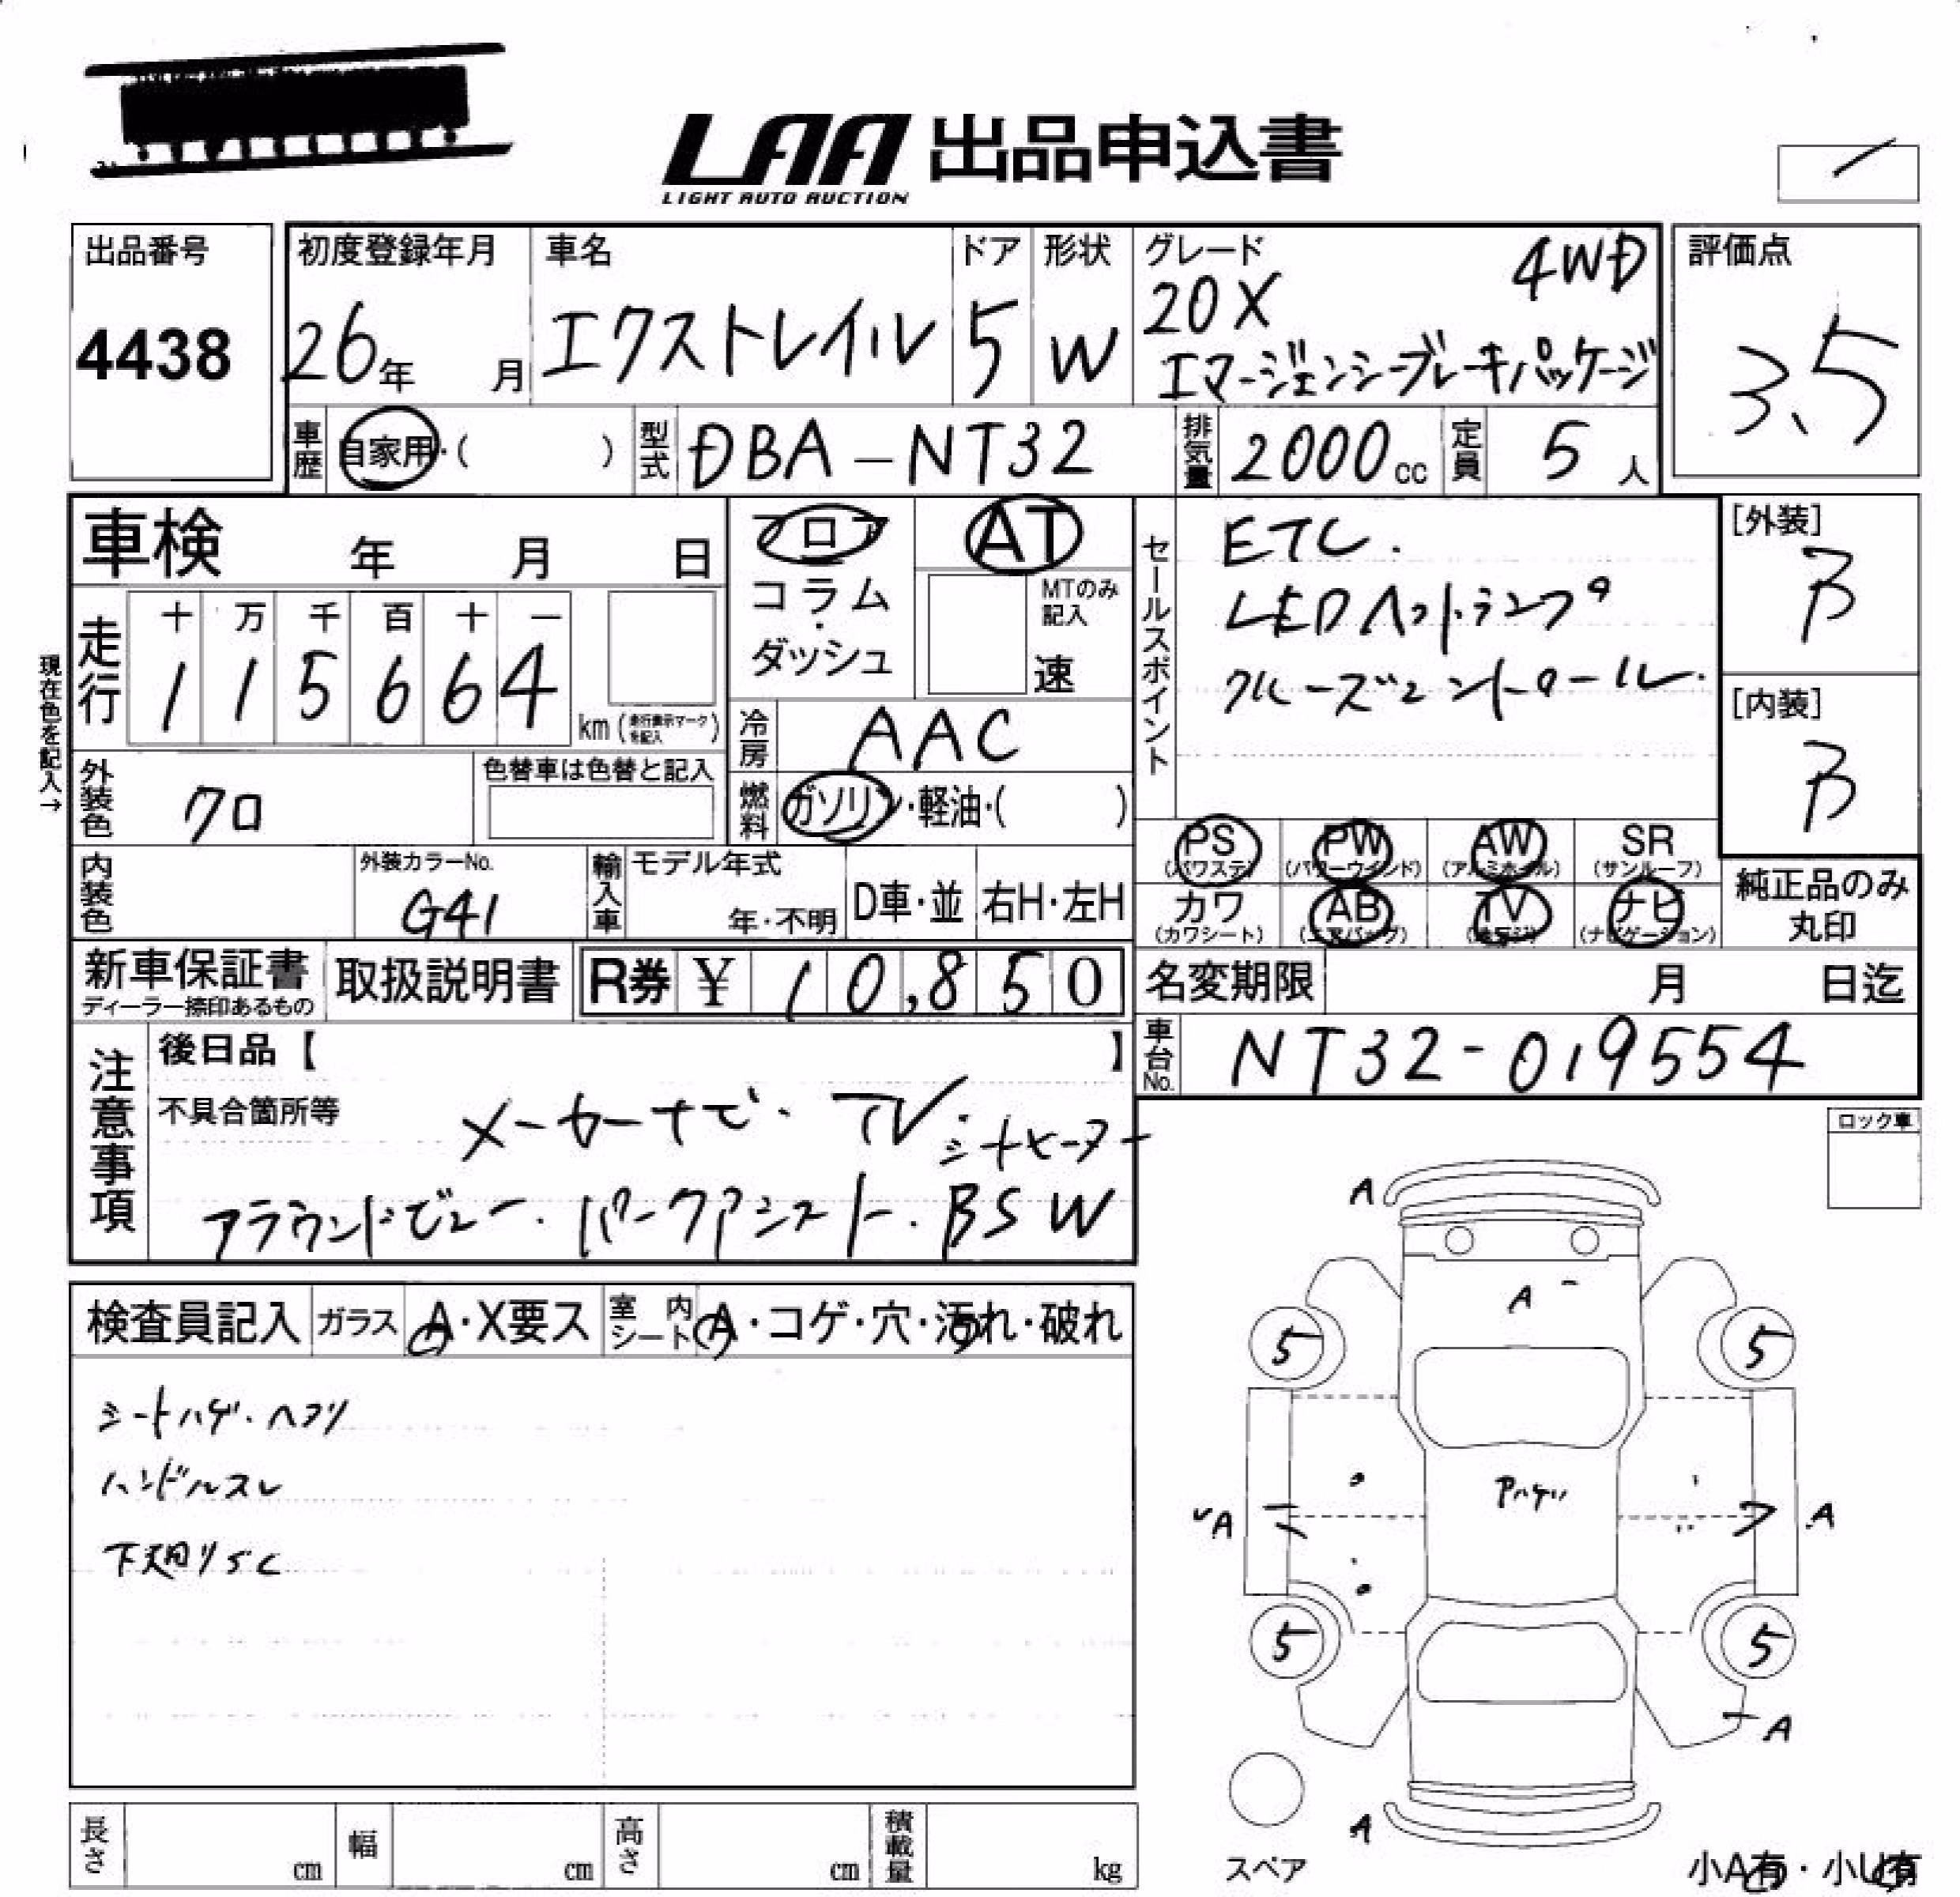 LAA 出品申込書
LIGHT AUTO AUCTION
出品番号
4438
初度登録年月
26年 月
車名
エクストレイル
ドア
5
形状
W
グレード
20X 4WD
エマージェンシーブレーキパッケージ
評価点
3.5
車歴 自家用・( )
型式 DBA-NT32
排気量 2000cc
定員 5人
車検 年 月 日
フロア
コラム
・
ダッシュ
AT
MTのみ
記入
速
セールスポイント
ETC.
LEDヘッドランプ
クルーズコントロール.
[外装]
B
[内装]
B
現在色を記入→
走行
十 万 千 百 十 一
1 1 5 6 6 4
km (走行表示マークを記入)
冷房 AAC
外装色 クロ
色替車は色替と記入
燃料 ガソリン・軽油・( )
PS (パワステ)
PW (パワーウインド)
AW (アルミホイル)
SR (サンルーフ)
カワ (カワシート)
AB (エアバッグ)
TV (テレビ)
ナビ (ナビゲーション)
純正品のみ
丸印
内装色
外装カラーNo.
G41
輸入車 モデル年式
年・不明
D車・並
右H・左H
新車保証書
ディーラー捺印あるもの
取扱説明書
R券 ¥ 10,850
名変期限 月 日迄
車台No. NT32-019554
注意事項
後日品【 】
不具合箇所等
メーカーナビ・TV・シートヒーター
アラウンドビュー・パークアシスト・BSW
ロック車
検査員記入 ガラス A・X要ス 室内シート A・コゲ・穴・汚れ・破れ
シートハゲ・ヘコリ
ハンドルスレ
下廻りSC
A
A
5 5
Pハゲリ
A A
5 5
A
A
スペア
小A有・小U有
長さ cm
幅 cm
高さ cm
積載量 kg